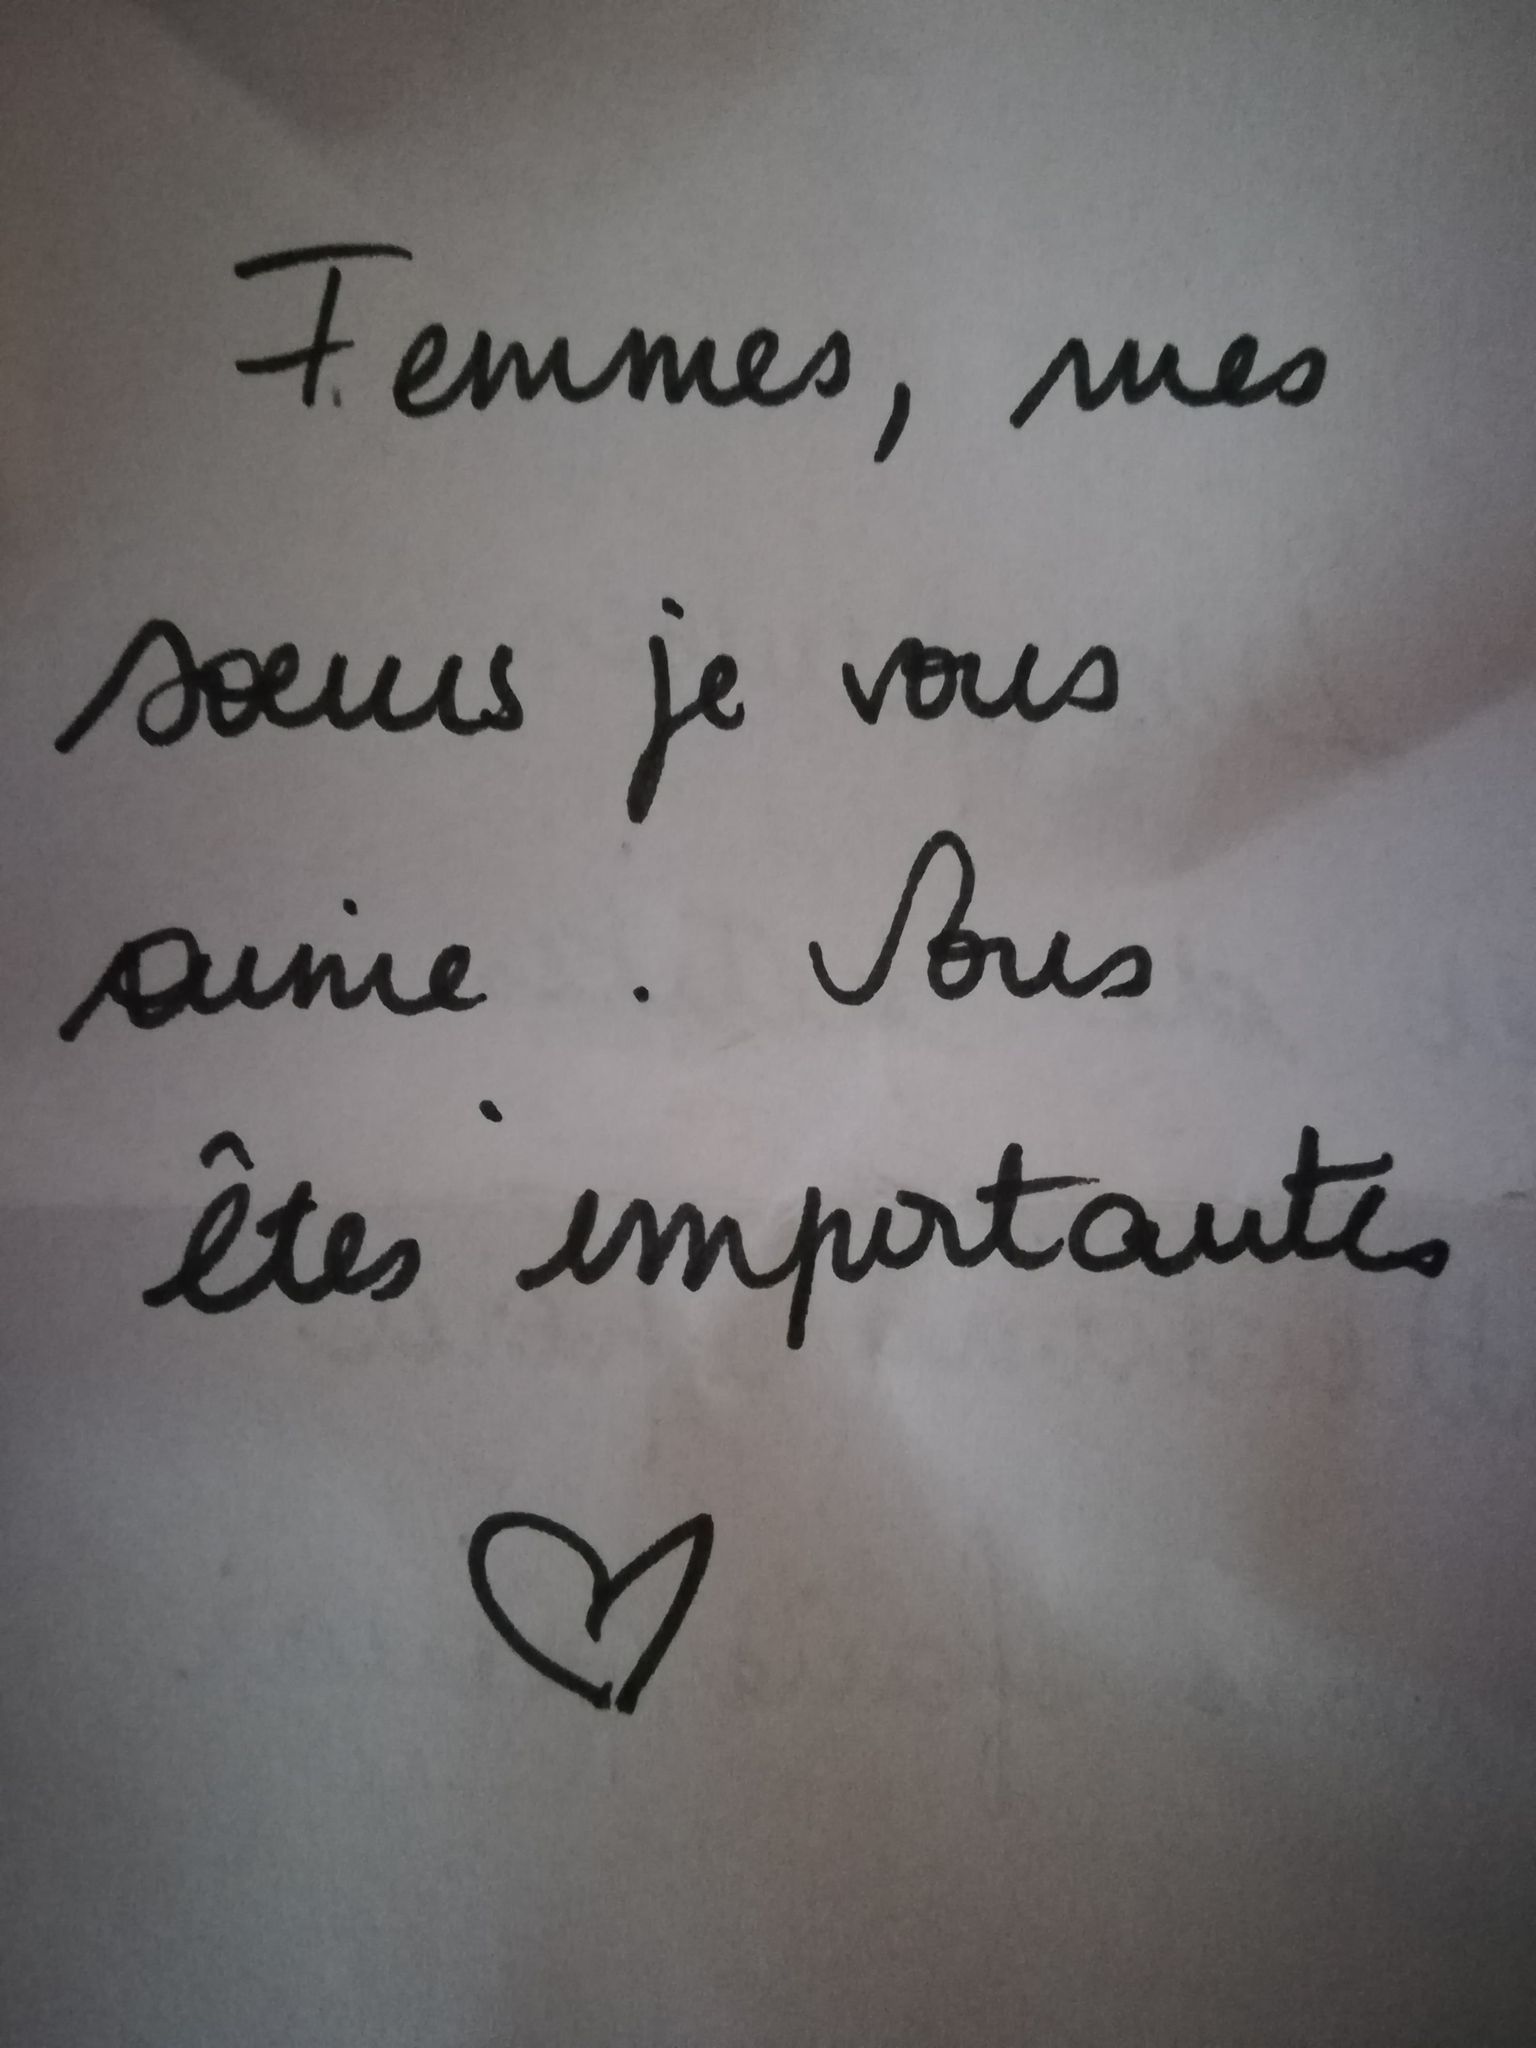 Femmes, mes
sœurs je vous
aime. Vous
êtes importantes